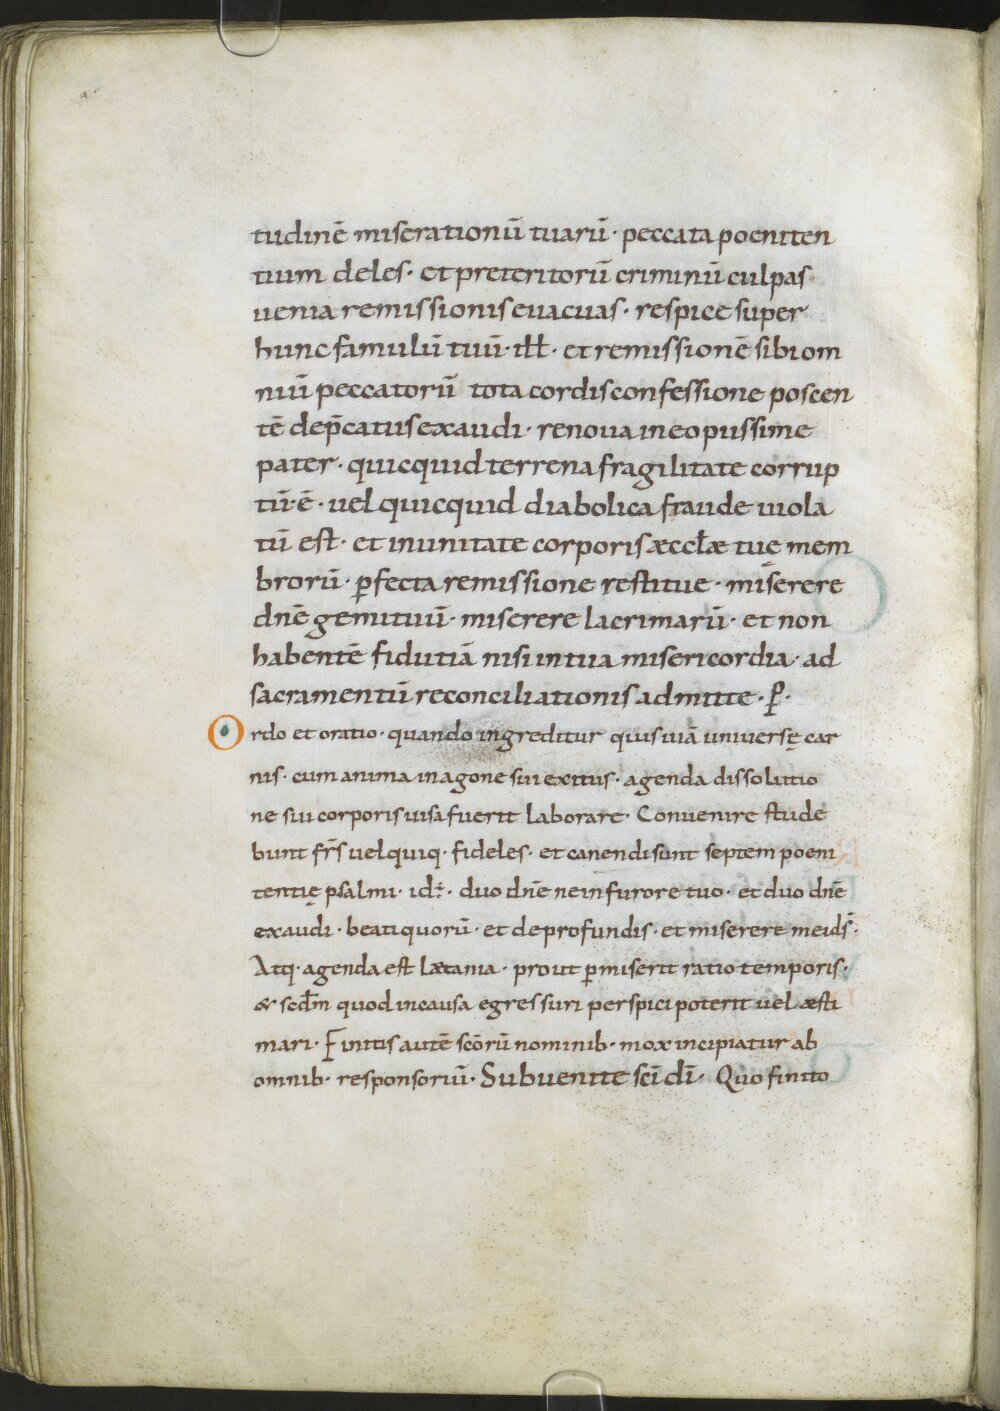 tudinē miserationū tuarū · peccata poeniten
tium deles · et preteritorū criminū culpas
uenia remissionis euacuas · respice super
hunc famulū tuū · ill · et remissionē sibi om
niū peccatorū tota cordis confessione poscen
tē dep̄catus exaudi · renoua in eo piissime
pater · quicquid terrena fragilitate corrup
tū · ē · uel quicquid diabolica fraude uiola
tū est · et in unitate corporis æccłæ tuę mem
brorū · ꝑfecta remissione restitue · miserere
dn̄e gemituū · miserere lacrimarū · et non
habentē fidutiā nisi in tua misericordia · ad
sacramentū reconciliationis admitte · P̄ ·
Ordo et oratio · quando ingreditur quis uiā uniuersę car
nis · cum anima in agone sui exitus · agenda dissolutio
ne sui corporis uisa fuerit laborare · Conuenire stude
bunt fr̄s uel quiq · fideles · et canendi sunt septem poeni
tentię psalmi · id÷ · duo dn̄e ne in furore tuo · et duo dn̄e
exaudi · beati quorū · et de profundis · et miserere mei ds̄ ·
Atq · agenda est lætania · prout ꝑmiserit ratio temporis ·
& scd̄m quod in causa egressuri perspici poterit uel æsti
mari · Finitis autē scōrū nominib · mox incipiatur ab
omnib · responsoriū · Subuenite scī dī · Quo finito